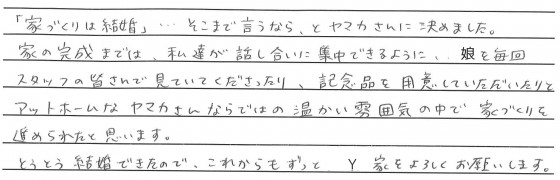 「家づくりは結婚」…そこまで言うなら、とヤマカさんに決めました。
家の完成までは、私達が話し合いに集中できるように、娘を毎回
スタッフの皆さんで見ていてくださったり、記念品を用意していただいたりと
アットホームなヤマカさんならではの温かい雰囲気の中で家づくりを
進められたと思います。
とうとう結婚できたので、これからもずっと Y 家をよろしくお願いします。